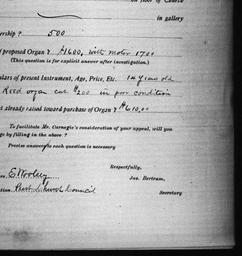 on floor of Church
in gallery
ership ? 500
proposed Organ ? $1600, with motor 1700
(This question is for explicit answer after investigation.)
ulars of present Instrument, Age, Price, Etc. 14 years old
Reed organ cost $200 in poor condition
t already raised toward purchase of Organ ? $610.00
To facilitate Mr. Carnegie's consideration of your appeal, will you
ge by filling in the above ?
Precise answer to each question is necessary
Respectfully,
Jas. Bertram,
Secretary
Church Council